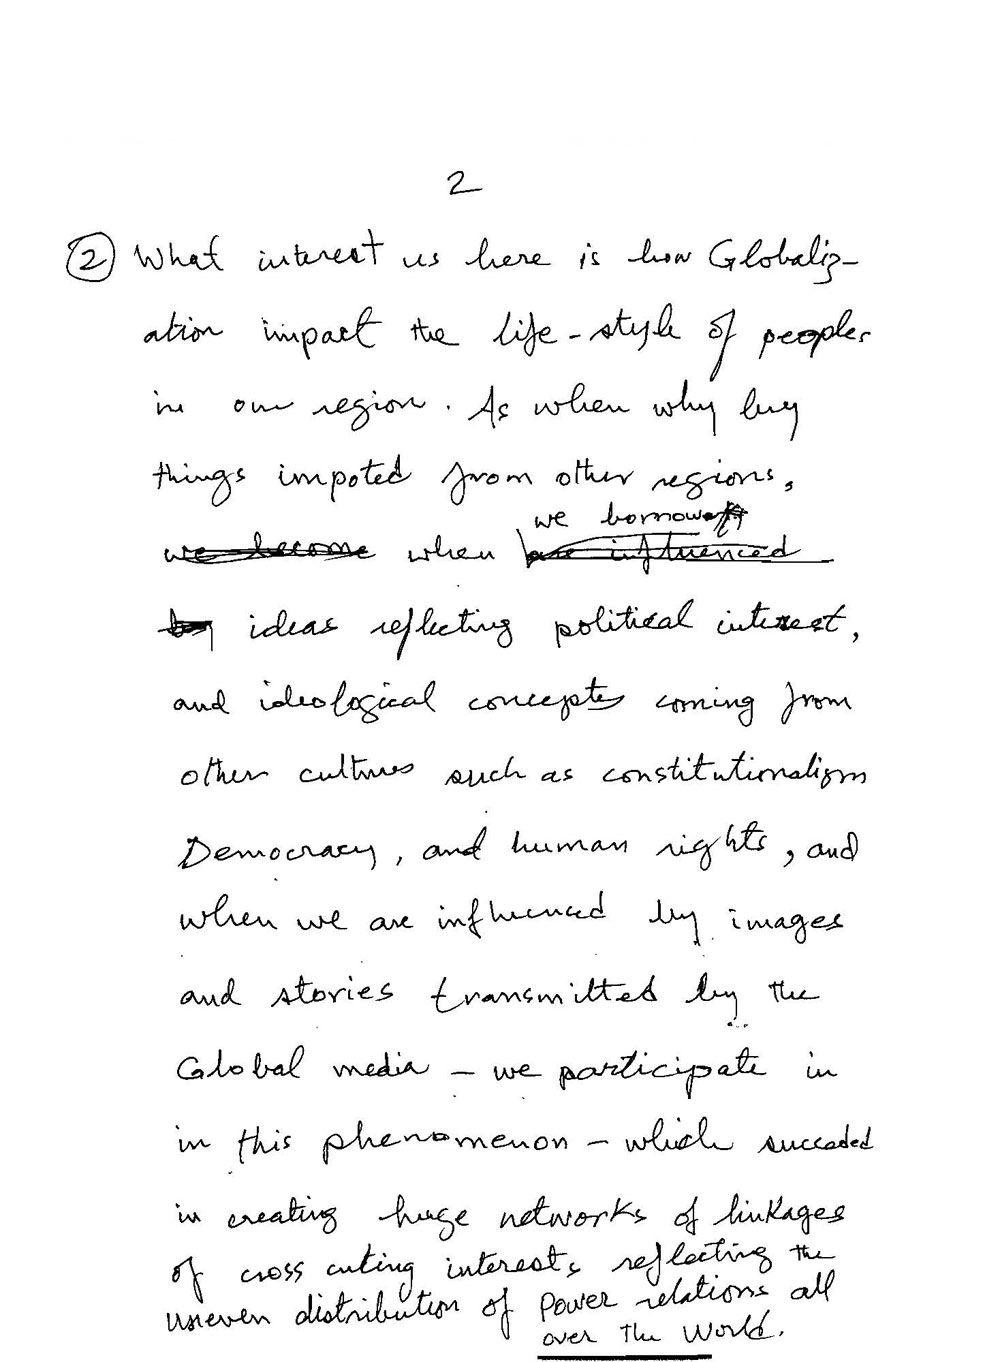 2
② What interest us here is how Globaliz-
ation impact the life-style of peoples
in our region. As when why buy
things impoted from other regions,
we borrow
we become when are influenced
by ideas reflecting political interest,
and ideological concepts coming from
other cultures such as constitutionalism
Democracy, and human rights, and
when we are influenced by images
and stories transmitted by the
Global media – we participate in
in this phenomenon – which succeded
in creating huge networks of linkages
of cross cuting interests reflecting the
uneven distribution of Power relations all
over the World.